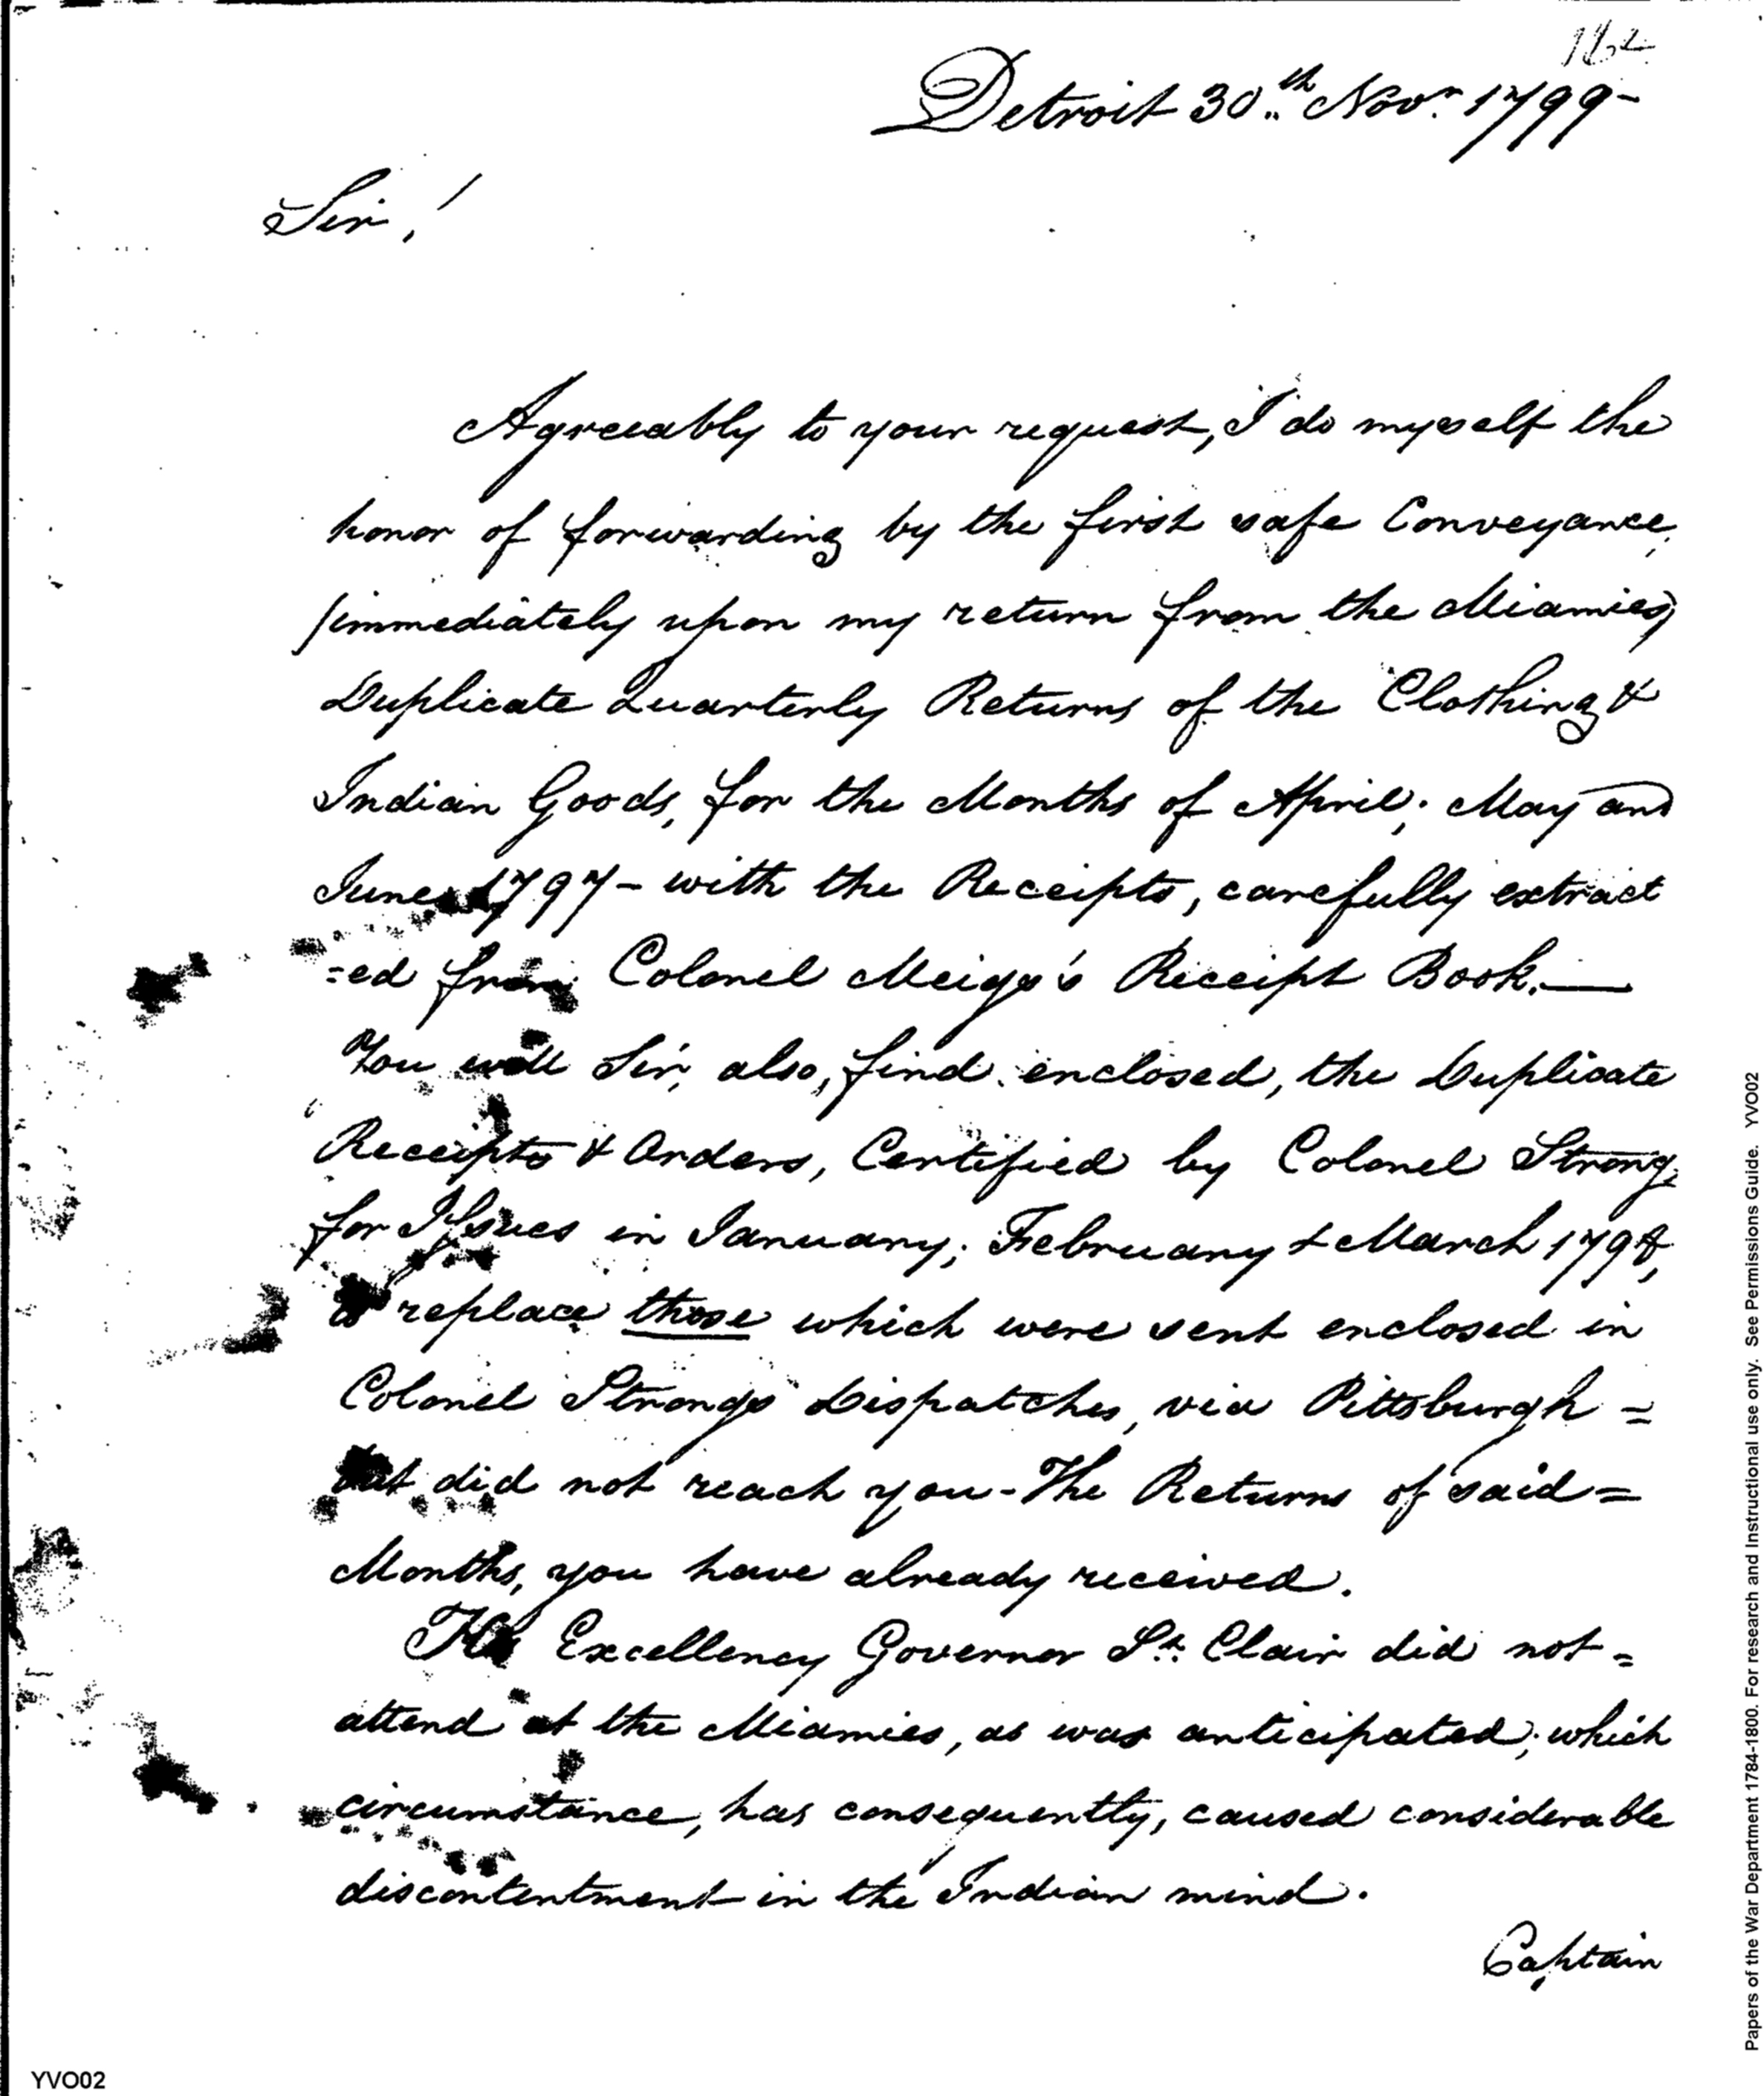 162
Detroit 30th Novr. 1799-
Sir!
Agreeably to your request, I do myself the
honor of forwarding by the first safe Conveyance,
/immediately upon my return from the Miamies)
Duplicate Quarterly Returns of the Clothing &
Indian Goods, for the Months of April, May and
June 1797- with the Receipts, carefully extract
=ed from Colonel Meigs's Receipt Book.—
You will Sir, also, find enclosed, the Duplicate
Receipts & Orders, Certified by Colonel Strong,
for Issues in January, February & March 1798,
to replace those which were sent enclosed in
Colonel Strongs Dispatches, via Pittsburgh =
but did not reach you - The Returns of said =
Months, you have already received.
His Excellency Governor St. Clair did not =
attend at the Miamies, as was anticipated; which
circumstance, has consequently, caused considerable
discontentment in the Indian mind.
Captain
YVO02
Papers of the War Department 1784-1800. For research and Instructional use only. See Permissions Guide. YVO02